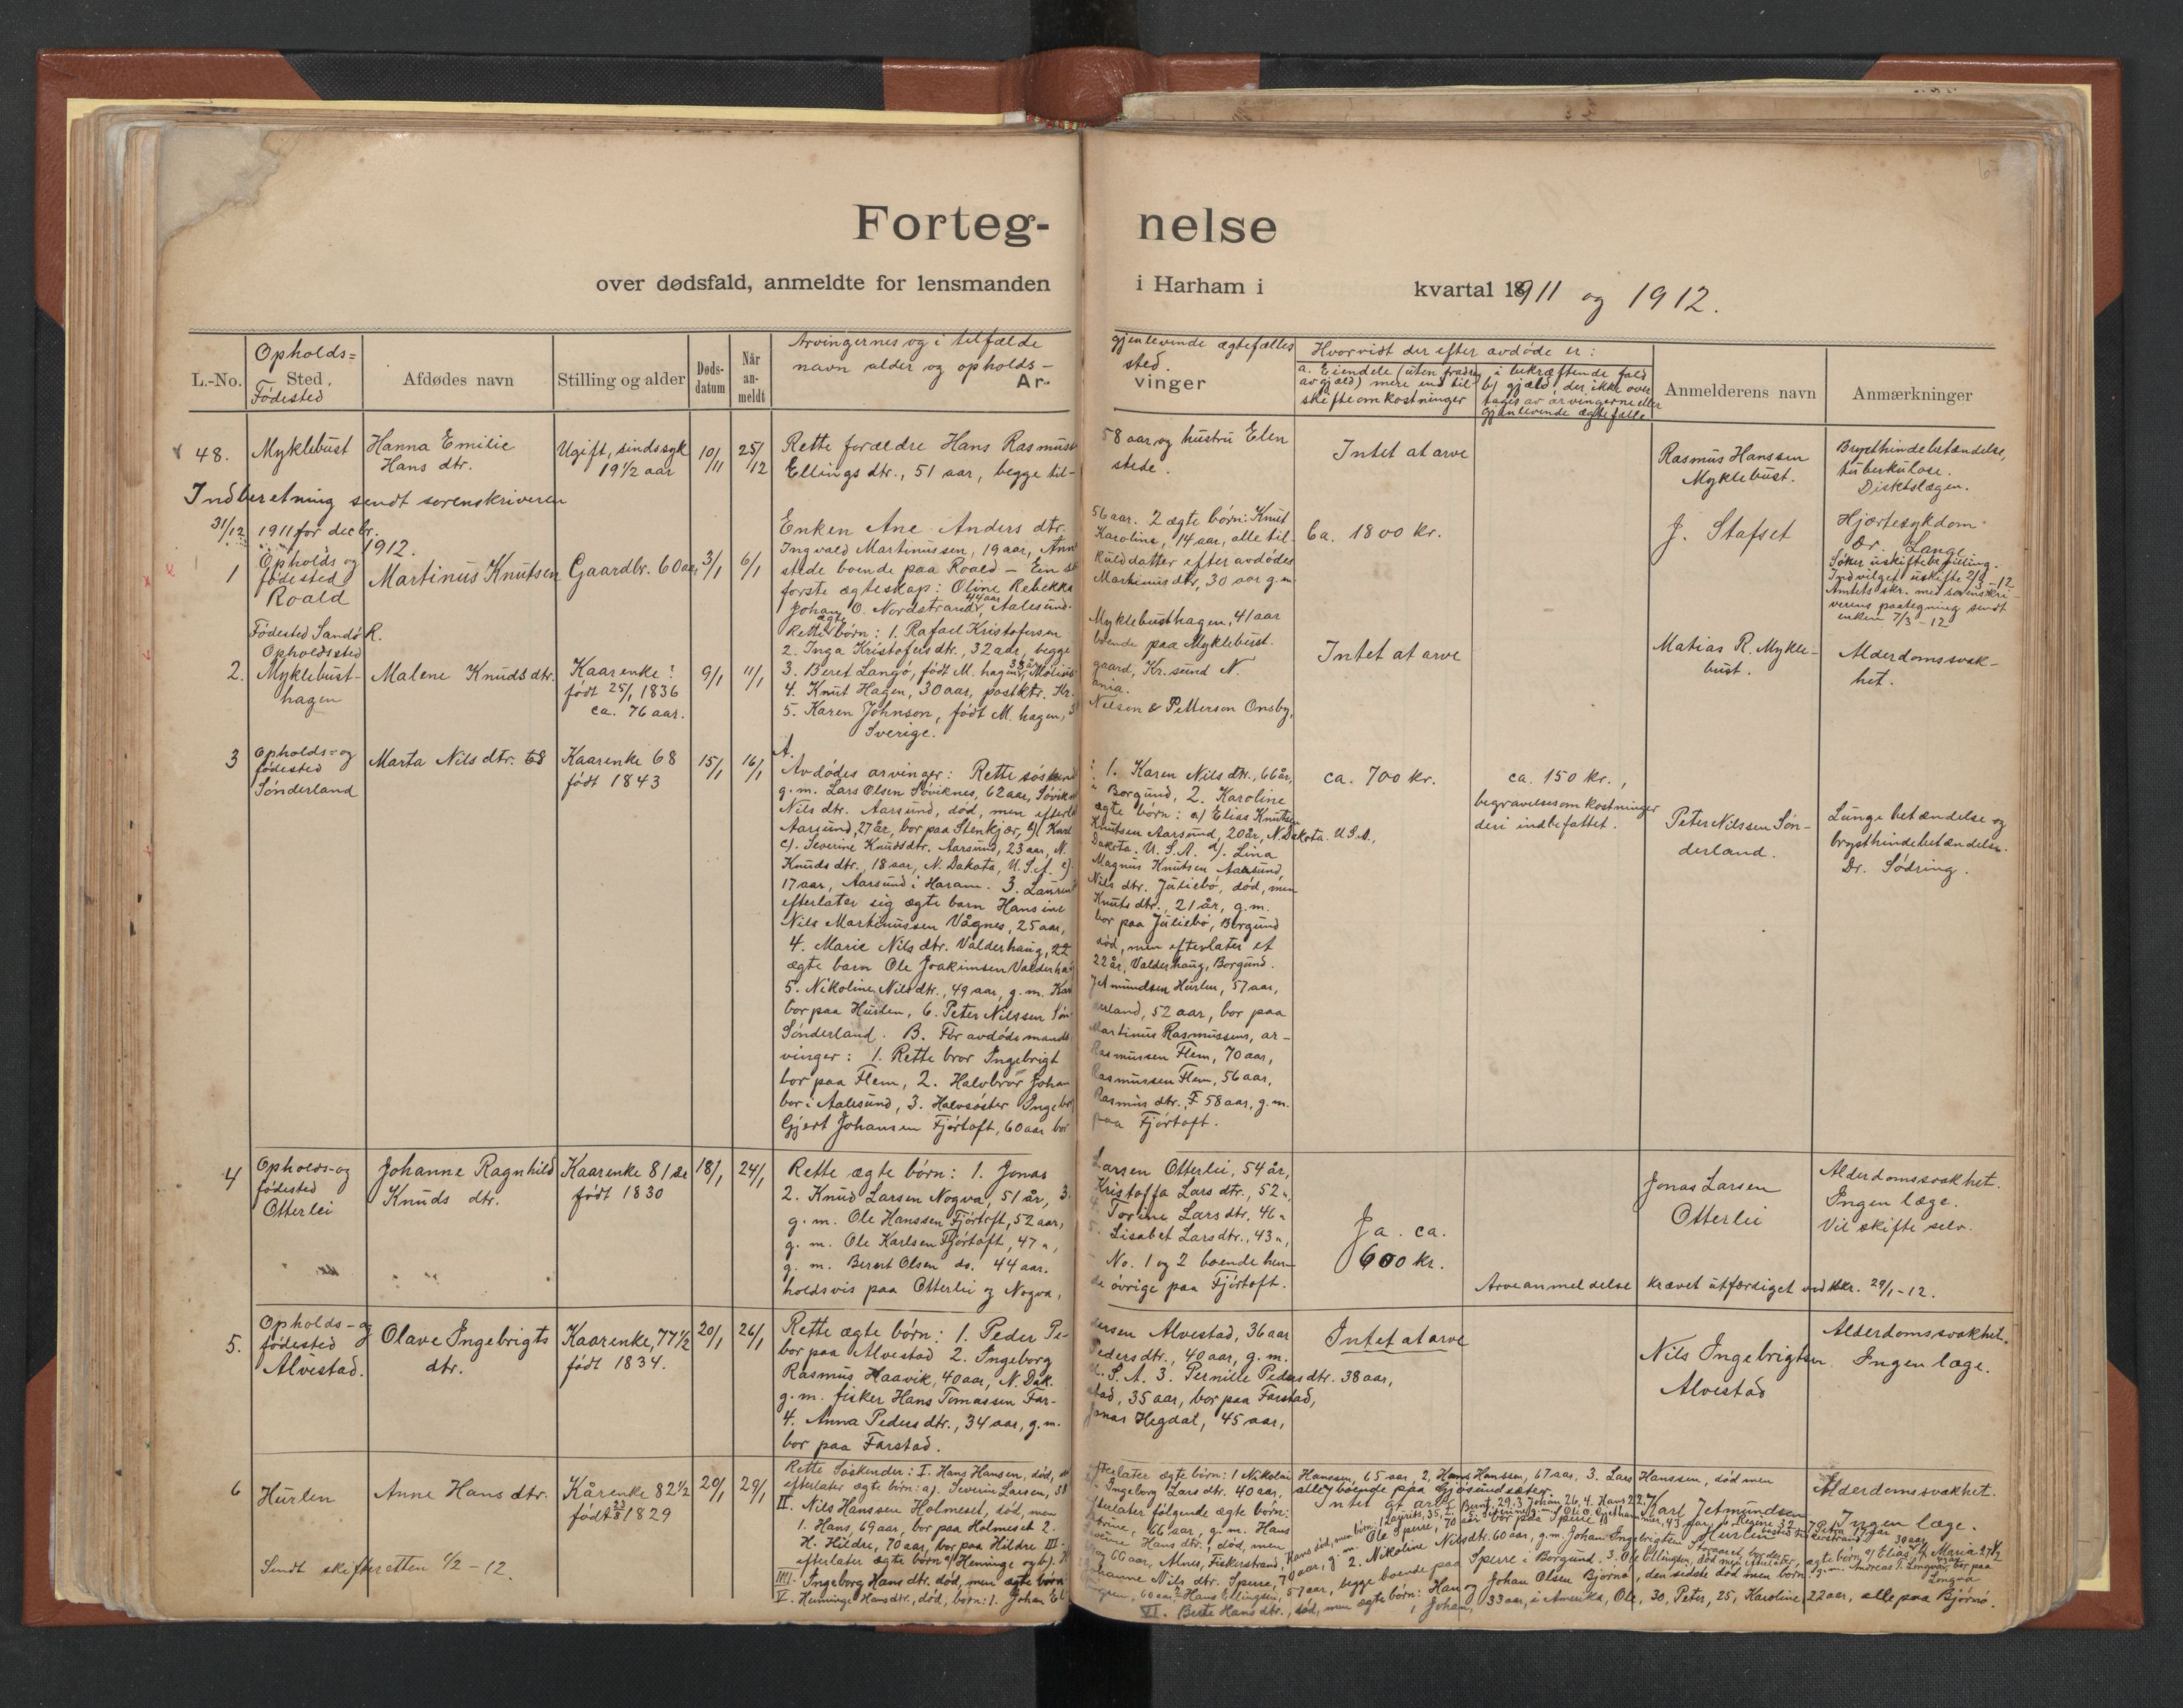 Forteg-
nelse
over dødsfald, anmeldte for lensmanden
i Harham i
kvartal 1911 og 1912.
L.-No.
Opholds=
Sted.
Fødested
Afdødes navn
Stilling og alder
Døds-
datum
Når
an-
meldt
Arvingernes og i tilfælde
navn alder og opholds-
Ar-
gjenlevende ægtefælles
sted.
vinger
Hvorvidt der efter avdøde er:
a. Eiendele (uten fradrag
av gjæld) mere end til
skifteomkostninger
i bekræftende fald
b) gjæld, der ikke over
tages av arvingerne eller
gjenlevende ægtefælle
Anmelderens navn
Anmærkninger
48.
Myklebust
Hanna Emilie
Hans dtr.
Ugift, sindssyk
19 1/2 aar
10/11
25/12
Rette forældre Hans Rasmuss
Ellings dtr., 51 aar, begge til-
58 aar, og hustru Elen
stede.
Intet at arve
Rasmus Hanssen
Myklebust.
Brysthindebetændelse,
tuberkulose.
Distktslægen.
Indberetning sendt sorenskriveren
31/12 1911 for decbr.
1912.
1
Opholds og
fødested
Roald
Martinus Knutsen
Gaardbr. 60 aar
3/1
6/1
Enken Ane Anders dtr.
Ingvald Martinussen, 19 aar, Ann
stede boende paa Roald - Ein
første ægteskap: Oline Rebekka
Johan O. Nordstrand, 44 aar, Aalesund.
56 aar. 2 ægte børn: Knut
Karoline, 14 aar, alle til-
kulddatter efter avdødes
Martinus dtr, 30 aar g.m
Ca. 1800 kr.
J. Stafset
Hjertesykdom
Dr Lange
Søker uskiftebevilling.
Indvilget uskifte 2/3-12
Amtets skr. med sorenskri-
verens paategning sendt
enken 7/3-12
2.
Fødested Sandø R.
Opholdssted
Myklebust-
hagen
Malene Knuds dtr.
Kaarenke:
født 25/1 1836
ca. 76 aar.
9/1
11/1
Rette ægte børn: 1. Rafael Kristofersen
2. Inga Kristofers dtr., 32 aar, begge
3. Beret Langø, født M. hagen, Molius
4. Knut Hagen, 30 aar, postktr. Kr.
5. Karen Johnson, født M. hagen,
Sverige.
Myklebusthagen, 41 aar
boende paa Myklebust.
gaard, Kr.sund N.
ania.
Nelson & Petterson Onsby,
Intet at arve
Matias R. Mykle-
bust.
Alderdomssvak-
het.
3
Opholds=og
fødested
Sønderland
Marta Nils dtr. 68
Kaarenke 68
født 1843
15/1
16/1
A.
Avdødes arvinger: Rette søskend
g.m. Lars Olsen Søviknes, 62 aar, Søvikn
Nils dtr. Aarsund, død, men efterla
Aarsund, 27 år, bor paa Stenkjær, b) Karl
c). Severine Knuds dtr. Aarsund, 23 aar, N.
Knuds dtr., 18 aar, N. Dakota, U.S.A. e)
17 aar, Aarsund i Haram. 3. Laurine
efterlater sig ægte barn Hansine
Nils Martinussen Vågnes, 25 aar,
4. Marie Nils dtr. Valderhaug, 22
ægte barn Ole Joakimsen Valderhau
5. Nikoline Nils dtr., 49 aar, g.m. Kar
bor paa Hurlen, 6. Peter Nilssen Søn
Sønderland. B. For avdøde mands
vinger: 1. Rette bror Ingebrigt
bor paa Flem, 2. Halvbror Johan
bor i Aalesund, 3. Halvsøster Ingebor
Gjert Johansen Fjørtoft, 60 aar bor
: 1. Karen Nils dtr., 66 år,
i Borgund, 2. Karoline
ægte børn: a) Elias Knutsen
Knutsen Aarsund, 20 år, N Dakota. U.S.A.,
Dakota. U.S.A. d). Lina
Magnus Knutsen Aarsund,
Nils dtr. Juliebø, død, men
Knuts dtr., 21 år, g.m.
bor paa Juliebø, Borgund
død, men efterlater et
22 år, Valderhaug, Borgund.
Jetmundsen Hurlen, 57 aar,
derland, 52 aar, bor paa
Martinus Rasmussens, ar-
Rasmussen Flem, 70 aar,
Rasmussen Flem, 56 aar,
Rasmus dtr., F 58 aar, g.m.
paa Fjørtoft.
ca. 700 kr.
ca. 150 kr.,
begravelsesomkostninger
deri indbefattet.
Peter Nilssen Søn-
derland.
Lungebetændelse og
brysthindebetændelse.
Dr. Sødring.
4
Opholds-og
fødested
Otterlei
Johanne Ragnhild
Knuds dtr.
Kaarenke 81 aar
født 1830
18/1
24/1
Rette ægte børn: 1. Jonas
2. Knud Larsen Nogva, 51 år, 3.
g.m. Ole Hanssen Fjørtoft, 52 aar,
g.m. Ole Karlsen Fjørtoft, 47 ",
g.m. Berent Olsen do. 44 aar.
holdsvis paa Otterlei og Nogva,
Larsen Otterlei, 54 år,
Kristoffa Lars dtr., 52 ",
4. Torine Lars dtr, 46 "
5. Lisabet Lars dtr., 43 ",
- No. 1 og 2 boende hen-
de øvrige paa Fjørtoft.
Ja. ca.
600 kr.
Jonas Larsen
Otterlei
Alderdomssvakhet.
Ingen læge.
Vil skifte selv.
Arveanmeldelse krævet utfærdiget ved skr. 29/1-12.
5.
Opholds- og
fødested
Alvestad.
Olave Ingebrigts
dtr.
Kaarenke, 77 1/2
født 1834.
20/1
26/1
Rette ægte børn: 1. Peder Pe-
bor paa Alvestad 2. Ingeborg
Rasmus Haavik, 40 aar, N. Dak.
g.m. fisker Hans Tomassen Far-
4. Anna Peders dtr., 34 aar, g.m.
bor paa Farstad.
dersen Alvestad, 36 aar
Peders dtr., 40 aar, g.m.
U.S.A. 3. Pernille Peders dtr. 38 aar,
stad, 35 aar, bor paa Farstad,
Jonas Hegdal, 45 aar,
Intet at arve
Nils Ingebrigtsen
Alvestad
Alderdomssvakhet.
Ingen læge.
6
Hurlen
Anne Hans dtr.
Kårenke 82 1/2
født 23/8 1829
20/1
29/1
Sendt skifteretten 1/2-12.
Rette Søskender: I. Hans Hansen, død,
efterlater ægte børn: a). Severin Larsen, 38
II. Nils Hanssen Holmeset, død, men
1. Hans, 69 aar, bor paa Holmeset 2.
H. Hildre, 70 aar, bor paa Hildre III.
efterlater ægte børn a) Henninge og b).
IIII. Ingeborg Hans dtr. død, men ægte børn
V. Henninge Hans dtr., død, børn: 1. Johan El
efterlater ægte børn: 1 Nikolai Hanssen, 65 aar, 2. Hans Hanssen, 67 aar, 3. Lars Hanssen, død men
Ingeborg Lars dtr. 40 aar, alle boende paa Gjøsundsæter.
efterlater følgende ægte børn:
66 aar, g.m. Hans
Hans dtr., død, men
og 66 aar, Alnes, Fiskerstrand,
Intet at arve
Karl Jetmundsen
Hurlen
Alderdomssvakhet.
Ingen læge.
2. Nikoline Nils dtr. 60 aar, g.m. Johan Ingebrigtsen
57 aar, begge boende paa Sperre i Borgund. 3. Ole Ellingsen, død men efterlater
VI. Berte Hans dtr., død, men ægte børn: Han og Johan Olsen Bjørnø, den sidste død men børn
Johan, 33 aar, i Amerika, Ole, 30, Peter, 25, Karoline 22 aar, alle paa Bjørnø.